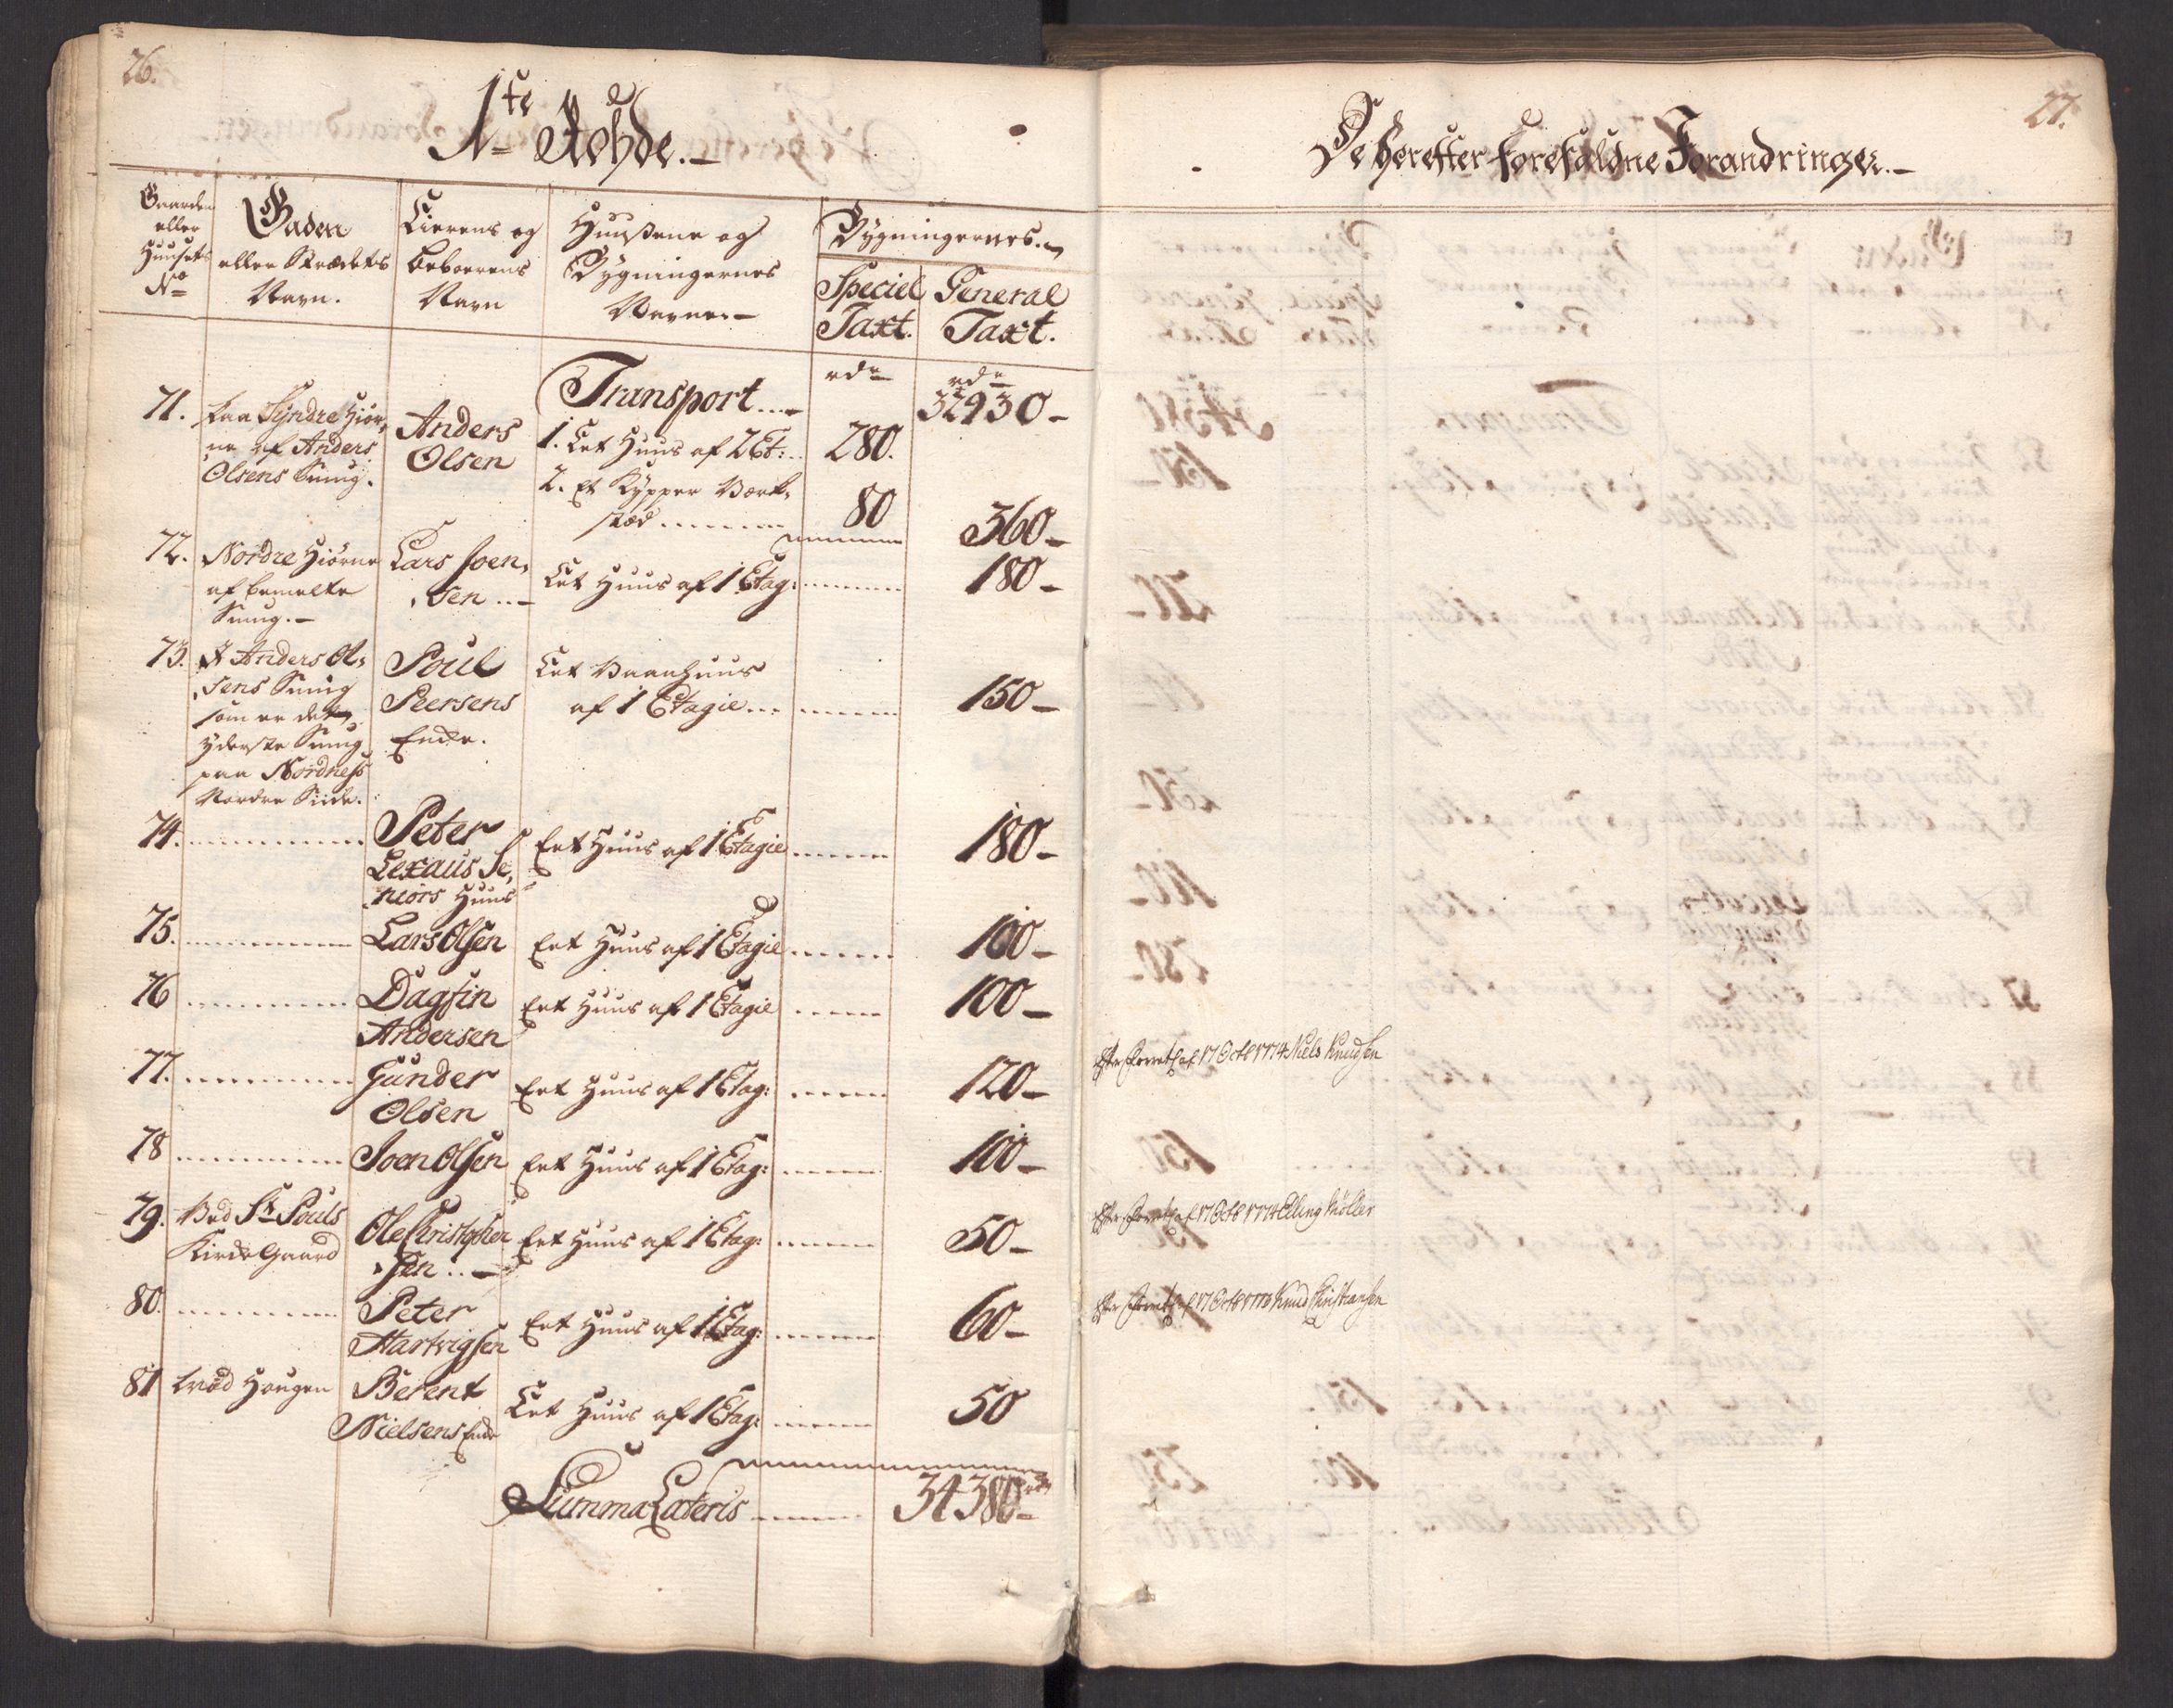 26.
1te Rohde.
Gaarden eller Huusets No
Gaden eller Strædets Navn.
Eierens og Beboerens Navn
Huusene og Bygningernes Navne.
Bygningernes
Speciel Taxt.
General Taxt.
Transport
rdr
rdr
32930
71.
paa Syndre Hiørne af Anders Olsens Smug.
Anders Olsen
1. Eet Huus af 2 Et:
280.
2. Et Kypper Værkstæd
80
360
72.
Nordre Hiørne af bemelte Smug.
Lars Joensen
Eet Huus af 1 Etag:
180
73.
I Anders Olsens Smug som er det yderste Smug paa Nordness Nordre Siide.
Poul Peersens Enke.
Eet Vaanhuus af 1 Etagie
150
74.
Peter Lexaus Seniors Huus
Eet Huus af 1 Etagie
180
75.
Lars Olsen
Eet Huus af 1 Etagie
100
76
Dagfin Andersen
Eet Huus af 1 Etagie
100
77.
Gunder Olsen
Eet Huus af 1 Etag:
120
78
Joen Olsen
Eet Huus af 1 Etag:
100
79.
Ved St Pouls Kirke Gaard
Ole Christophersen
Eet Huus af 1 Etag:
50
80.
Peter Hartvigsen
Eet Huus af 1 Etag:
60
81
ved Haugen
Berent Nielsens Enke
Eet Huus af 1 Etag:
50
Summa Lateris
34380
27.
De herefter forefaldne Forandringer.
af 17 Octb 1774 Niels Knudsen
af 17 Octb 1774 Elling Møller
af 17 Octb 1773 Knud Christiansen